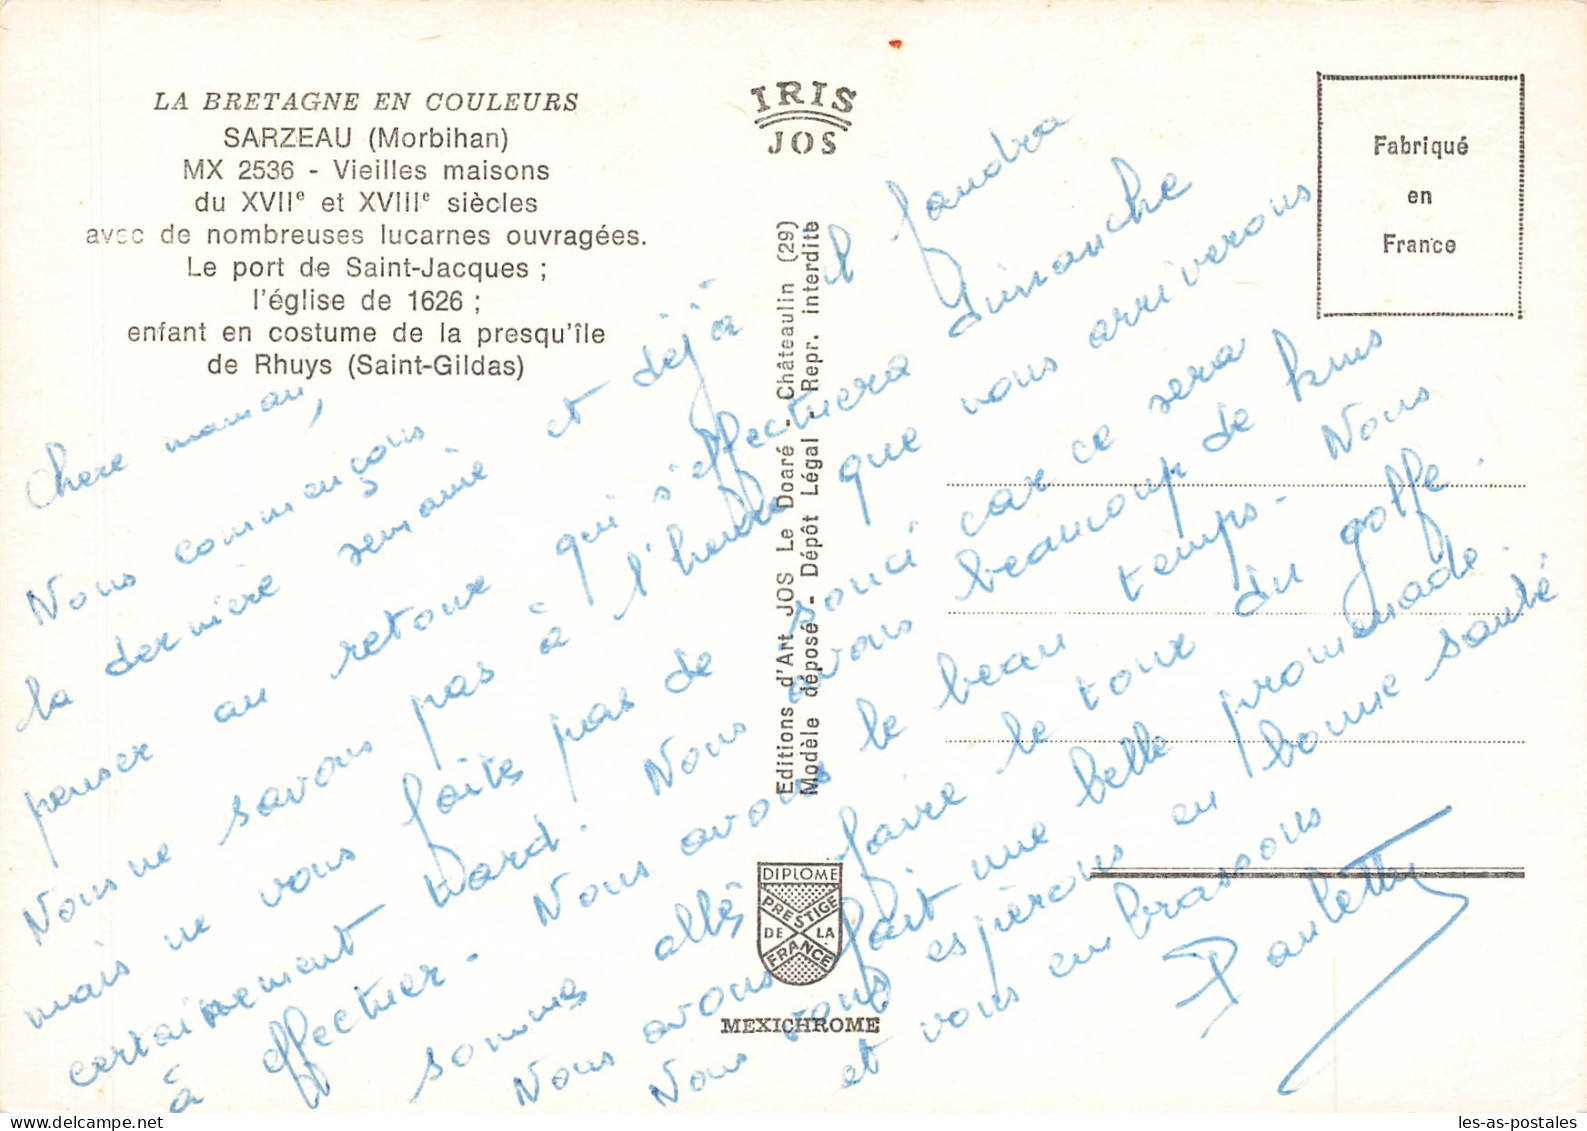 LA BRETAGNE EN COULEURS
SARZEAU (Morbihan)
MX 2536 - Vieilles maisons
du XVIIe et XVIIIe siècles
avec de nombreuses lucarnes ouvragées.
Le port de Saint-Jacques ;
l'église de 1626 ;
enfant en costume de la presqu'île
de Rhuys (Saint-Gildas)
IRIS
JOS
Fabriqué
en
France
Editions d'Art JOS Le Doaré - Châteaulin (29)
Modèle déposé - Dépôt Légal - Repr. interdite
DIPLOME
PRESTIGE
DE LA
FRANCE
MEXICHROME
Chere maman,
Nous commençons
la dernière semaine et déjà il faudra
penser au retour qui s'effectuera dimanche
Nous ne savons pas à l'heure que nous arriverons
mais ne vous faites pas de souci car ce sera
certainement tard. Nous avons beaucoup de kms
à effectuer. Nous avons le beau temps. Nous
sommes allés faire le tour du golfe.
Nous avons fait une belle promenade.
Nous vous espérons en bonne santé
et vous embrassons
Paulette
les-as-postales